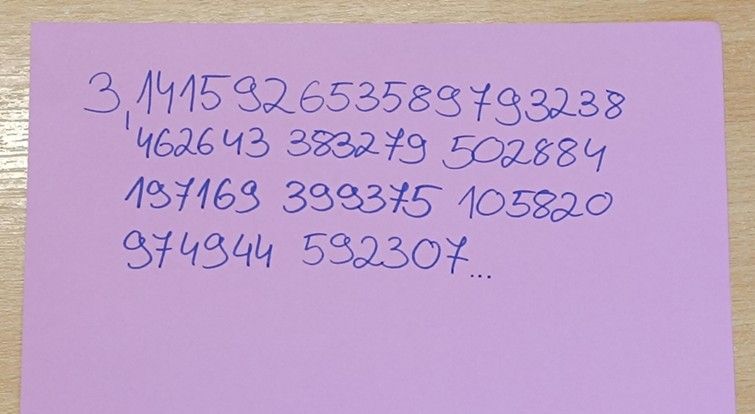 3,141592653589793238
462643 383279 502884
197169 399375 105820
974944 592307...